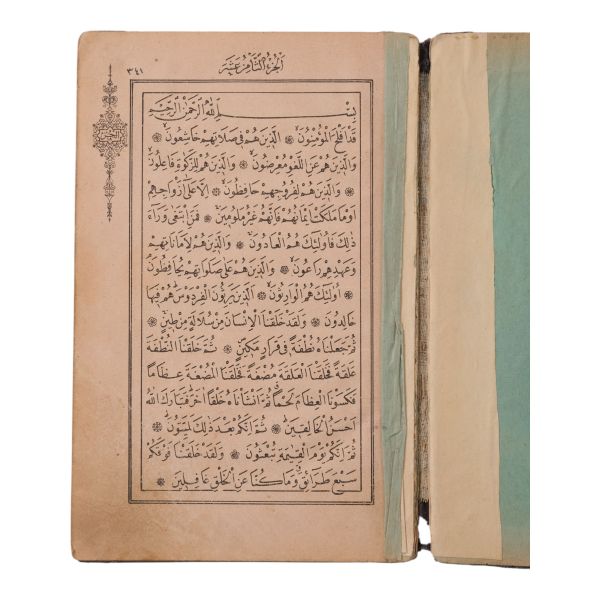 الجزء الثامن عشر
٣٤١
بسم الله الرحمن الرحيم
قد افلح المؤمنون ۞ الذين هم في صلاتهم خاشعون ۞
والذين هم عن اللغو معرضون ۞ والذين هم للزكوة فاعلون
۞ والذين هم لفروجهم حافظون ۞ الا على ازواجهم
او ما ملكت ايمانهم فانهم غير ملومين ۞ فمن ابتغى وراء
ذلك فاولئك هم العادون ۞ والذين هم لاماناتهم
وعهدهم راعون ۞ والذين هم على صلواتهم يحافظون
۞ اولئك هم الوارثون ۞ الذين يرثون الفردوس هم فيها
خالدون ۞ ولقد خلقنا الانسان من سلالة من طين ۞
ثم جعلناه نطفة في قرار مكين ۞ ثم خلقنا النطفة
علقة فخلقنا العلقة مضغة فخلقنا المضغة عظاما
فكسونا العظام لحما ثم انشاناه خلقا اخر فتبارك الله
احسن الخالقين ۞ ثم انكم بعد ذلك لميتون ۞
ثم انكم يوم القيمة تبعثون ۞ ولقد خلقنا فوقكم
سبع طرائق وما كنا عن الخلق غافلين